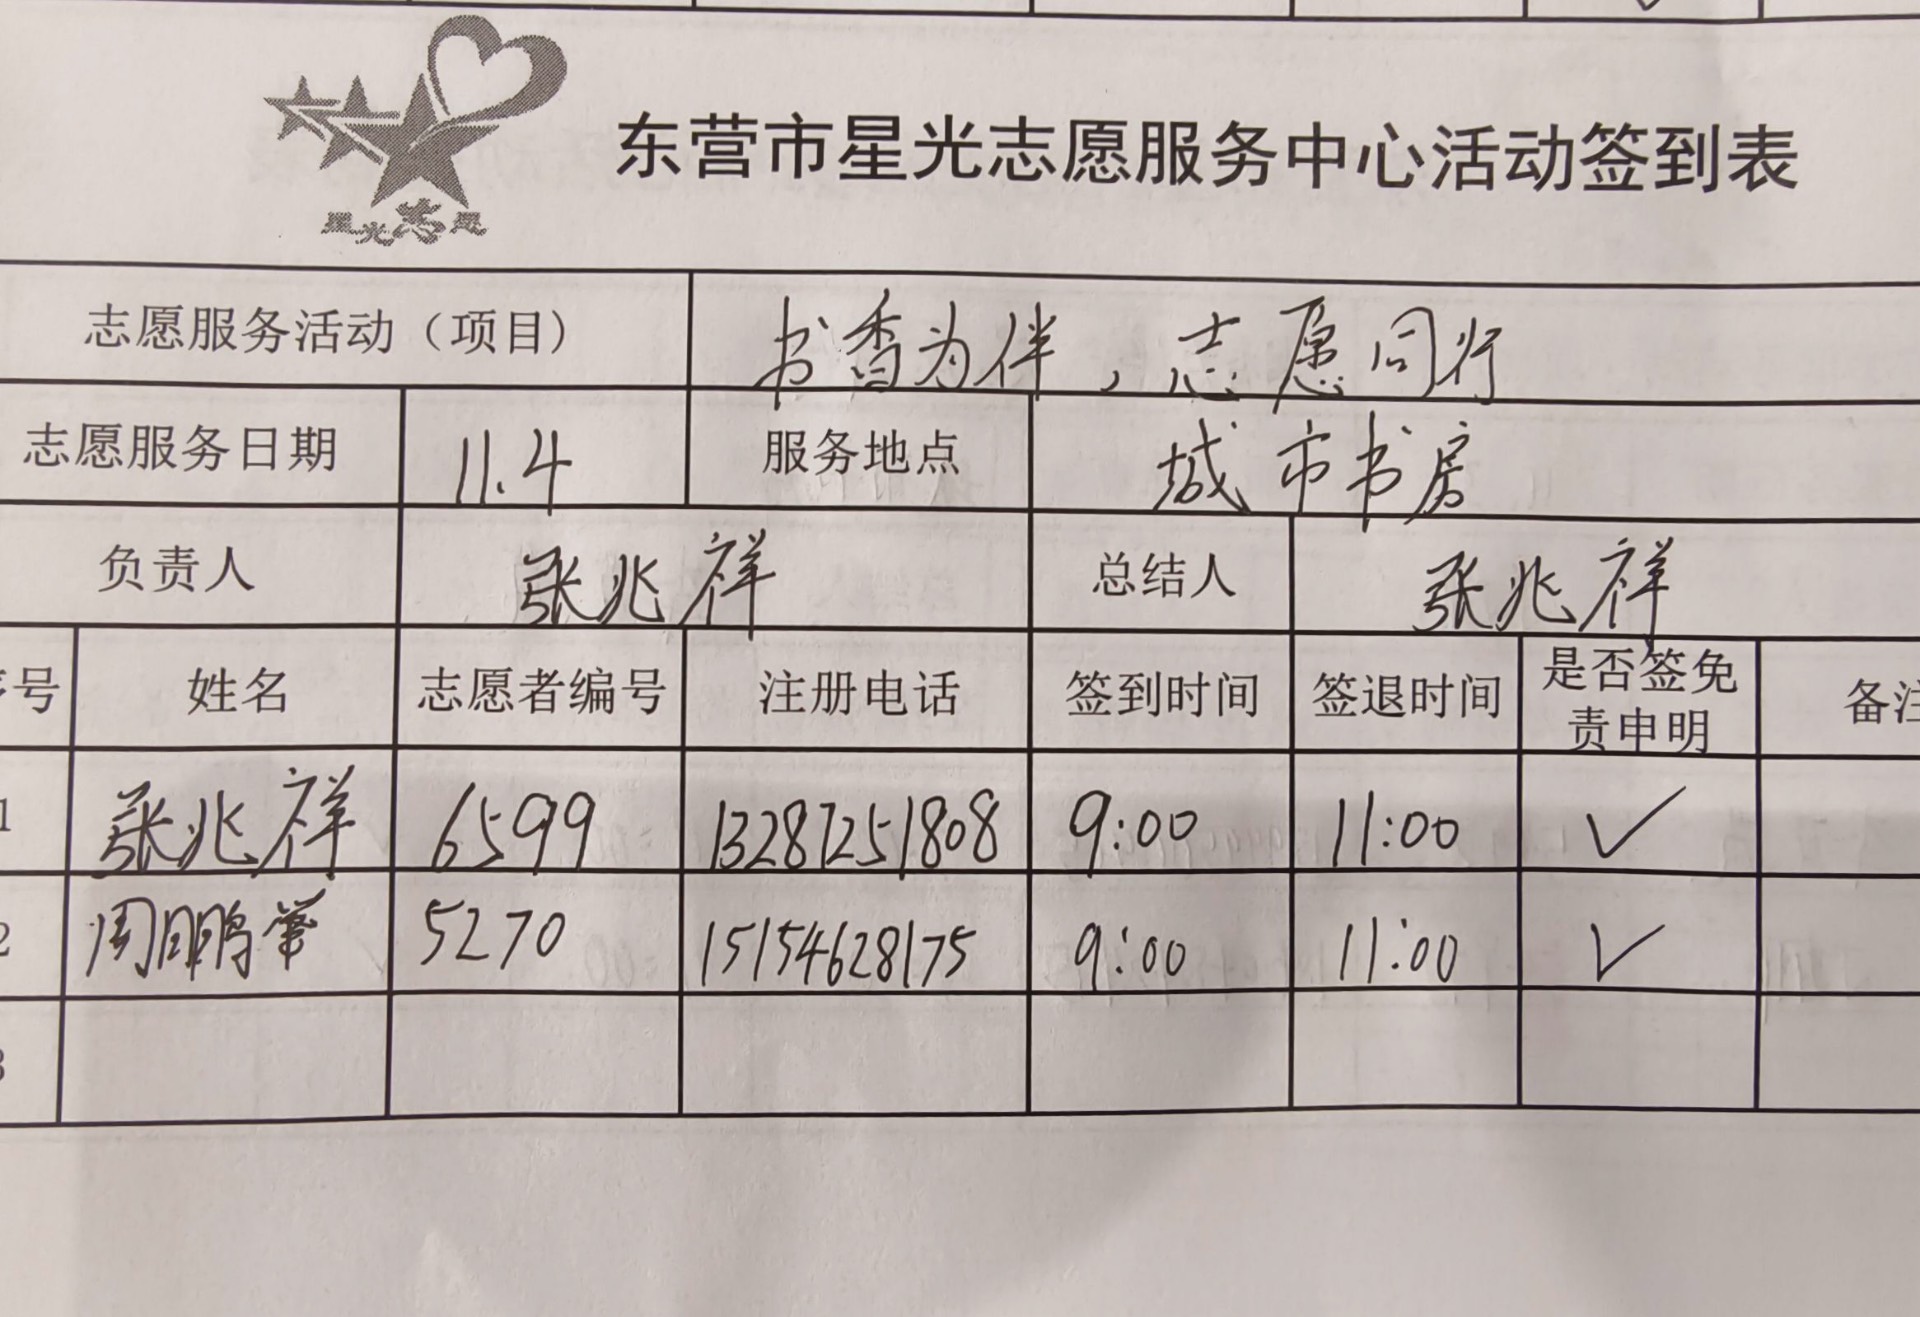 星光志愿
东营市星光志愿服务中心活动签到表
志愿服务活动（项目） 书香为伴，志愿同行
志愿服务日期 11.4 服务地点 城市书房
负责人 张兆祥 总结人 张兆祥
序号 姓名 志愿者编号 注册电话 签到时间 签退时间 是否签免责申明 备注
1 张兆祥 6599 13287251808 9:00 11:00 ✓
2 周鹏 5270 15154628175 9:00 11:00 ✓
3